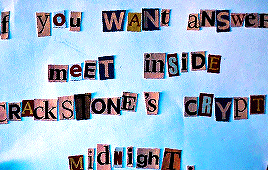 f you WANt aNSWeR
meET iNSiDE
CRACKSTONE'S CRYPT
MiDNiGHT.